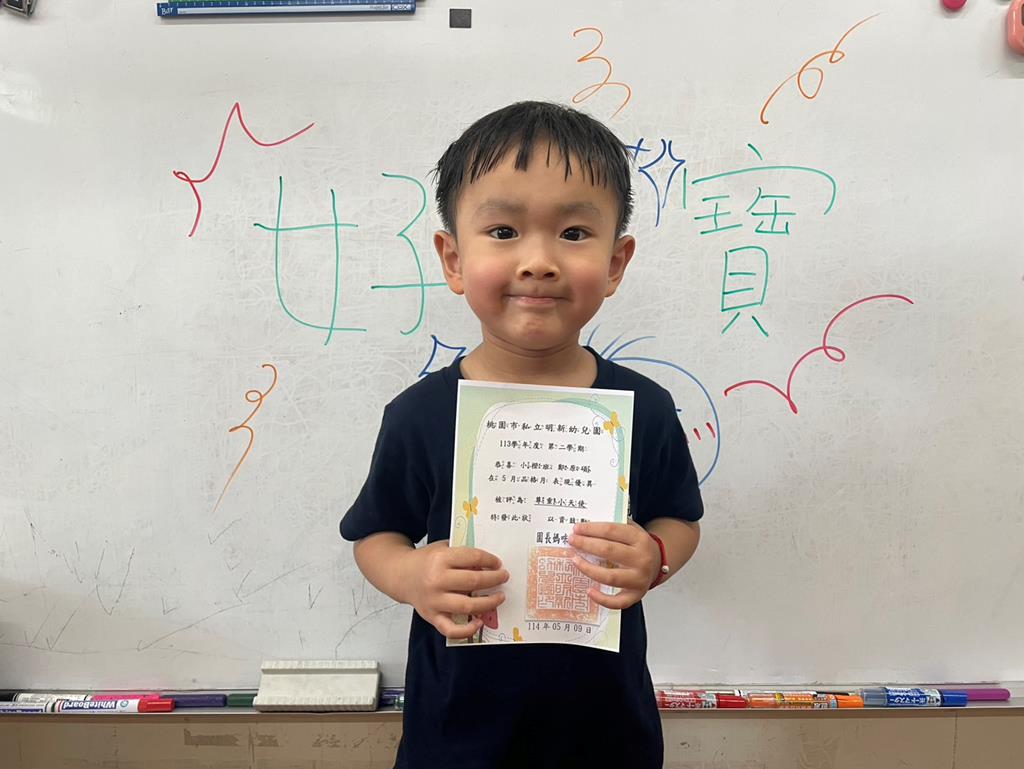 好寶
貝
桃園市私立明新幼兒園
113學年度 第二學期
恭喜 小橙班 鄭原碩
在 5 月品格月 表現優異
被評為 尊重小天使
特發此狀 以資鼓勵
園長媽咪
114 年 05 月 09 日
WhiteBoard